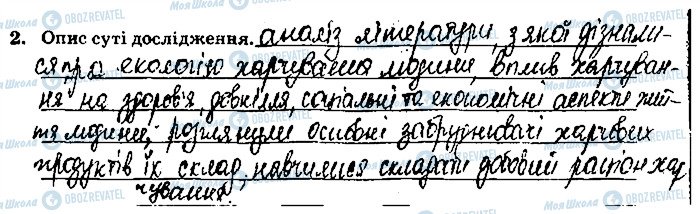 2. Опис суті дослідження. аналіз літератури, з якої дізнали-
ся про екологію харчування людини, вплив харчуван-
ня на здоров'я, довкілля, соціальні та економічні аспекти жит-
тя людини; розглянули основні забруднювачі харчових
продуктів їх склад, навчилися складати добовий раціон хар
чування.